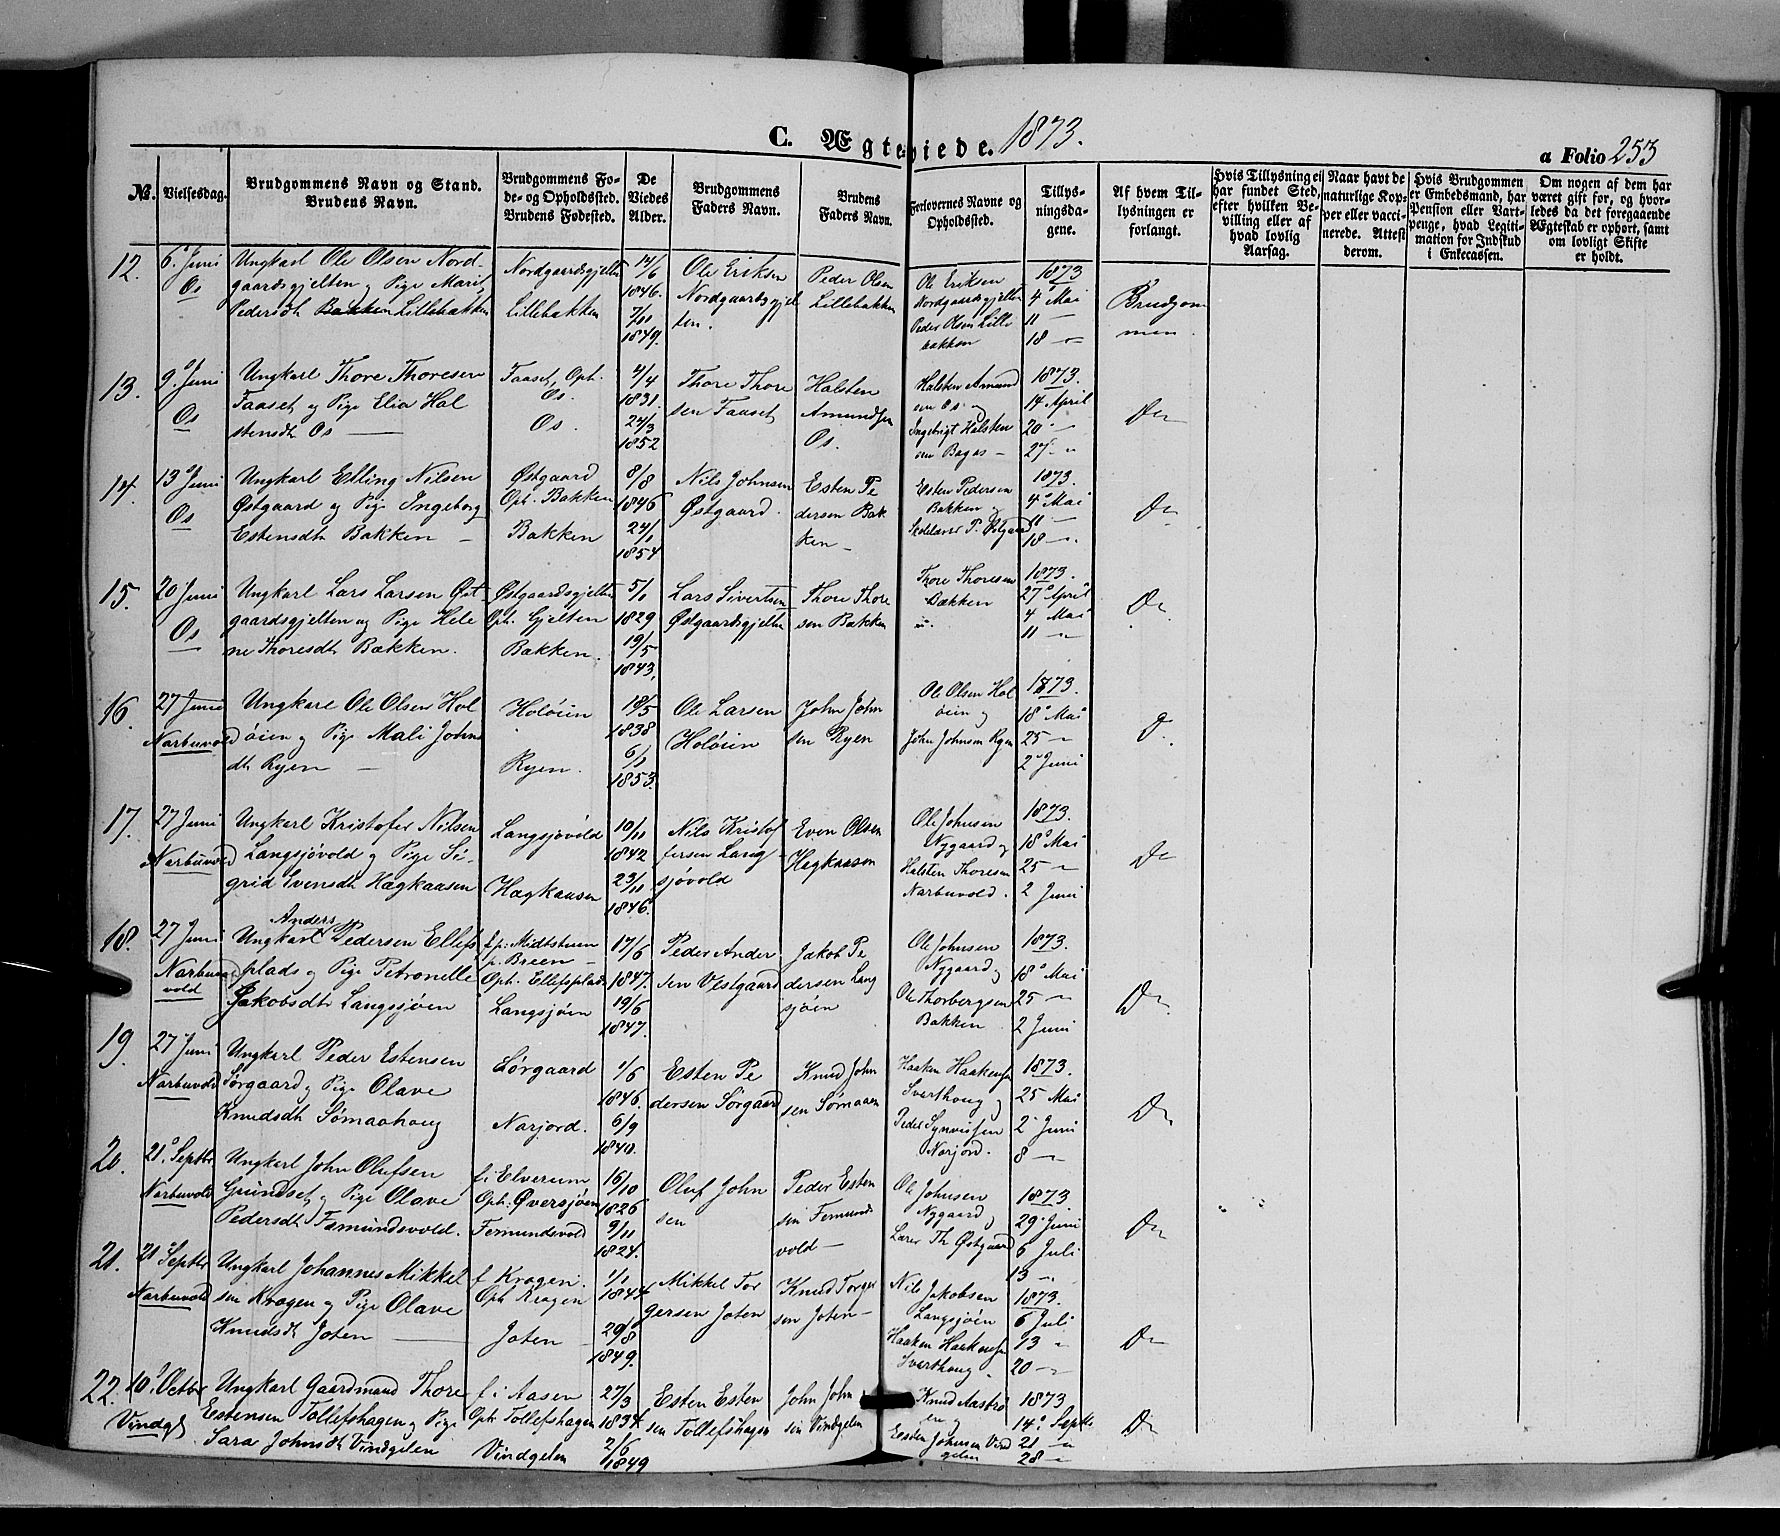 C. Ægteviede. 1873.
a Folio 253
No.
Vielsesdag.
Brudgommens Navn og Stand.
Brudens Navn.
Brudgommens Fø-
de- og Opholdssted.
Brudens Fødested.
De
Viedes
Alder.
Brudgommens
Faders Navn.
Brudens
Faders Navn.
Forlovernes Navne og
Opholdssted.
Tillys-
ningsda-
gene.
Af hvem Til-
lysningen er
forlangt.
Hvis Tillysning ei
har fundet Sted,
efter hvilken Be-
villing eller af
hvad lovlig
Aarsag.
Naar havt de
naturlige Kop-
per eller vacci-
nerede. Attest
derom.
Hvis Brudgommen
er Embedsmand, har
Pension eller Vart-
penge, hvad Legiti-
mation for Indskud
i Enkecassen.
Om nogen af dem har
været gift før, og hvor-
ledes da det foregaaende
Ægteskab er ophørt, samt
om lovligt Skifte
er holdt.
12.
6. Juni
Os
Ungkarl Ole Olsen Nord
gaardsgjelten og Pige Marit
Pedersdt Bakken Lillebakken
Nordgaardsgjelten
Lillebakken
14/6
1846.
7/11
1849.
Ole Eriksen
Nordgaardsgjel
ten.
Peder Olsen
Lillebakken
Ole Eriksen
Nordgaardsgjelten
Peder Olsen Lille
bakken
1873
4 Mai
11 —
18 —
Brudgom
men
13.
9. Juni
Os
Ungkarl Thore Thoresen
Faaset og Pige Elia Hal
stensdt Os —
Faaset, Oph.
Os.
Os.
4/4
1831.
24/3
1852
Thore Thore
sen Faaset
Halsten
Amundsen
Os.
Halsten Amund
sen Os og
Ingebrigt Halsten
sen Bagas —
1873.
14 April
20 —
27 —
Do
14.
13 Juni
Os
Ungkarl Elling Nilsen
Østgaard og Pige Ingeborg
Estensdt Bakken —
Østgaard
Oph. Bakken
Bakken
8/8
1846
24/1
1854
Nils Johnsen
Østgaard.
Esten Pe
dersen Bak
ken —
Esten Pedersen
Bakken
Skolelærer P. Østgaard
1873.
4 Mai
11 —
18 —
Do
15.
20 Juni
Os
Ungkarl Lars Larsen Øst
gaardsgjelten og Pige Hele
ne Thoresdt Bækken.
Østgaardsgjelten
Oph. Gjelten
Bækken.
5/1
1829
19/5
1843.
Lars Sivertsen
Østgaardsgjelten
Thore Thore
sen Bækken
Thore Thoresen
Bækken
1873.
27 April
4 Mai
11 —
Do
16.
27 Juni
Narbuvold
Ungkarl Ole Olsen Hol
øien og Pige Mali Johns
dt Ryen —
Holøien
Ryen.
18/5
1838
6/1
1853.
Ole Larsen
Holøien
John John
sen Ryen
Ole Olsen Hol
øien og
John Johnsen Ryen
1873.
18 Mai
25 —
2 Juni
D.
17.
27 Juni
Narbuvold
Ungkarl Kristofer Nilsen
Langsjøvold og Pige Si-
grid Evensdt Hagkaasen
Langsjøvold
Hagkaasen
10/11
1842
23/11
1846.
Nils Kristof
fersen Lang
sjøvold
Even Olsen
Hagkaasen
Ole Johnsen
Nygaard og
Halsten Thoresen
Narbuvold.
1873.
18 Mai
25 —
2 Juni
Do
18.
27 Juni
Narbuvold
Anders
Ungkarl Pedersen Ellefs
plads og Pige Petronelle
Jakobsdt Langsjøen
f. p. Midtstuen
p. Breen —
Oph. Ellefsplads
Langsjøen
17/6
1847.
19/6
1847.
Peder Ander
sen Vestgaard
Jakob Pe
dersen Lang
sjøen
Ole Johnsen
Nygaard og
Ole Thorbergsen
Bakken
1873.
18 Mai
25 —
2 Juni
Do
19
27 Juni
Narbuvold
Ungkarl Peder Estensen
Sørgaard og Pige Olave
Knudsdt Sømaahaug
Sørgaard
Narjord.
1/6
1846.
6/9
1840.
Esten Pe
dersen Sørgaard
Knud John
sen Sømaaen
Haaken Haakensen
Svarthaug og
Peder Synvissen
Narjord.
1873.
25 Mai
2 Juni
8 —
Do
20.
21. Septbr
Narbuvold
Ungkarl John Olufsen
Grundset og Pige Olave
Pedersdt Femundsvold.
f. i Elverum
Oph. Øversjøen
Femundsvold
16/10
1826
9/11
1824.
Oluf John
sen
Peder Esten
sen Femunds
vold —
Ole Johnsen
Nygaard og
Lærer Th Østgaard
1873
29 Juni
6 Juli
13 —
Do
21.
21 Septbr
Narbuvold
Ungkarl Johannes Mikkel
sen Kragen og Pige Olave
Knudsdt Joten —
f. Kragen.
Oph Kragen
Joten —
1/1
1844
29/8
1849.
Mikkel Tor
gersen Joten
Knud Torger
sen Joten —
Nils Jakobsen
Langsjøen
Haaken Haakensen
Svarthaug.
1873.
6 Juli
13 —
20 —
Do
22.
10. Octbr
Vindgl
Ungkarl Gaardmand Thore
Estensen Tollefshagen og Pige
Sara Johnsdt Vindgelen
f. i Aasen
Oph Tollefshagen
Vindgelen
27/3
1834
2/6
1849
Esten Esten
sen Tollefshagen
John John
sen Vindgelen
Knud Aastrø
en og
Esten Johnsen Vind
gelen
1873
14. Septbr
21 —
28 —
Do